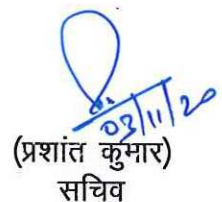 03/11/20
(प्रशांत कुमार)
सचिव